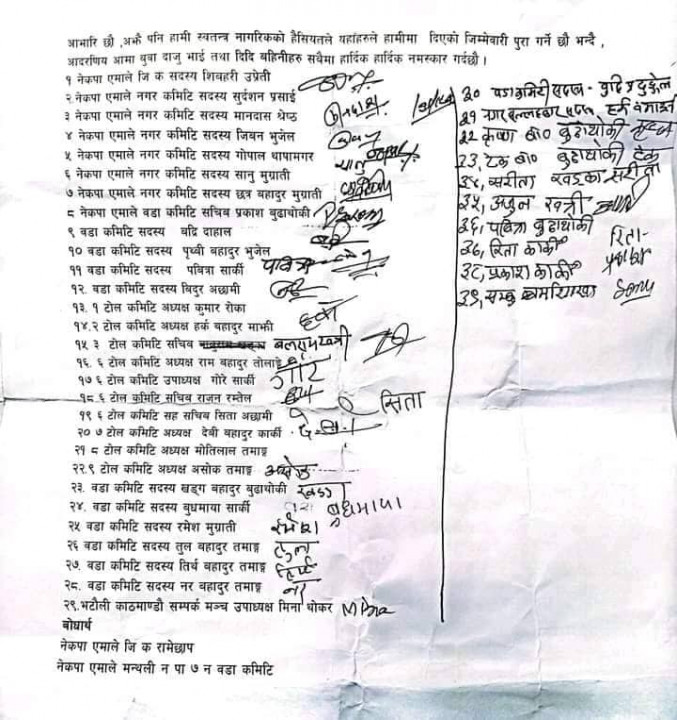 आभारि छौ ,अझै पनि हामी स्वतन्त्र नागरिकको हैसियतले यहाँहरुले हामीमा दिएको जिम्मेवारी पुरा गर्ने छौ भन्दै ,
आदरणिय आमा युवा दाजु भाई तथा दिदि बहिनीहरु सबैमा हार्दिक हार्दिक नमस्कार गर्दछौ ।
१ नेकपा एमाले जि क सदस्य शिवहरी उप्रेती
२ नेकपा एमाले नगर कमिटि सदस्य सुर्दशन प्रसाई
३ नेकपा एमाले नगर कमिटि सदस्य मानदास श्रेष्ठ
४ नेकपा एमाले नगर कमिटि सदस्य जिबन भुजेल
५ नेकपा एमाले नगर कमिटि सदस्य गोपाल थापामगर
६ नेकपा एमाले नगर कमिटि सदस्य सानु मुग्राती
७ नेकपा एमाले नगर कमिटि सदस्य छत्र बहादुर मुग्राती
८ नेकपा एमाले वडा कमिटि सचिब प्रकाश बुढाथोकी
९ वडा कमिटि सदस्य बद्रि दाहाल
१० वडा कमिटि सदस्य पृथ्वी बहादुर भुजेल
११ वडा कमिटि सदस्य पवित्रा सार्की पवित्रा
१२. वडा कमिटि सदस्य बिदुर अछामी
१३. १ टोल कमिटि अध्यक्ष कुमार रोका
१४.२ टोल कमिटि अध्यक्ष हर्क बहादुर माझी
१५ ३ टोल कमिटि सचिब बलराम खत्री
१६. ६ टोल कमिटि अध्यक्ष राम बहादुर तोलाङ्गे
१७ ६ टोल कमिटि उपाध्यक्ष गोरे सार्की गोरे
१८ ६ टोल कमिटि सचिब राजन रम्तेल
१९ ६ टोल कमिटि सह सचिब सिता अछामी सिता
२० ७ टोल कमिटि अध्यक्ष देबी बहादुर कार्की
२१ ८ टोल कमिटि अध्यक्ष मोतिलाल तमाङ्ग
२२.९ टोल कमिटि अध्यक्ष असोक तमाङ्ग असोक
२३. वडा कमिटि सदस्य खड्ग बहादुर बुढाथोकी
२४. वडा कमिटि सदस्य बुधमाया सार्की बुधमाया
२५ वडा कमिटि सदस्य रमेश मुग्राती रमेश
२६ वडा कमिटि सदस्य तुल बहादुर तमाङ्ग
२७. वडा कमिटि सदस्य तिर्थ बहादुर तमाङ्ग
२८. वडा कमिटि सदस्य नर बहादुर तमाङ्ग
२९.भटौली काठमाण्डौ सम्पर्क मञ्च उपाध्यक्ष मिना थोकर
बोधार्थ
नेकपा एमाले जि क रामेछाप
नेकपा एमाले मन्थली न पा ७ न वडा कमिटि
३० वडा कमिटी सदस्य
३२ कृष्ण ब० बुढाथोकी
३३, टेक ब० बुढाथोकी टेक
३४, सरीता खड्का सरीता
३५, अजुल खत्री
३६, पवित्रा बुढाथोकी
३७, रिता कार्की रिता
३८, प्रकाश कार्की